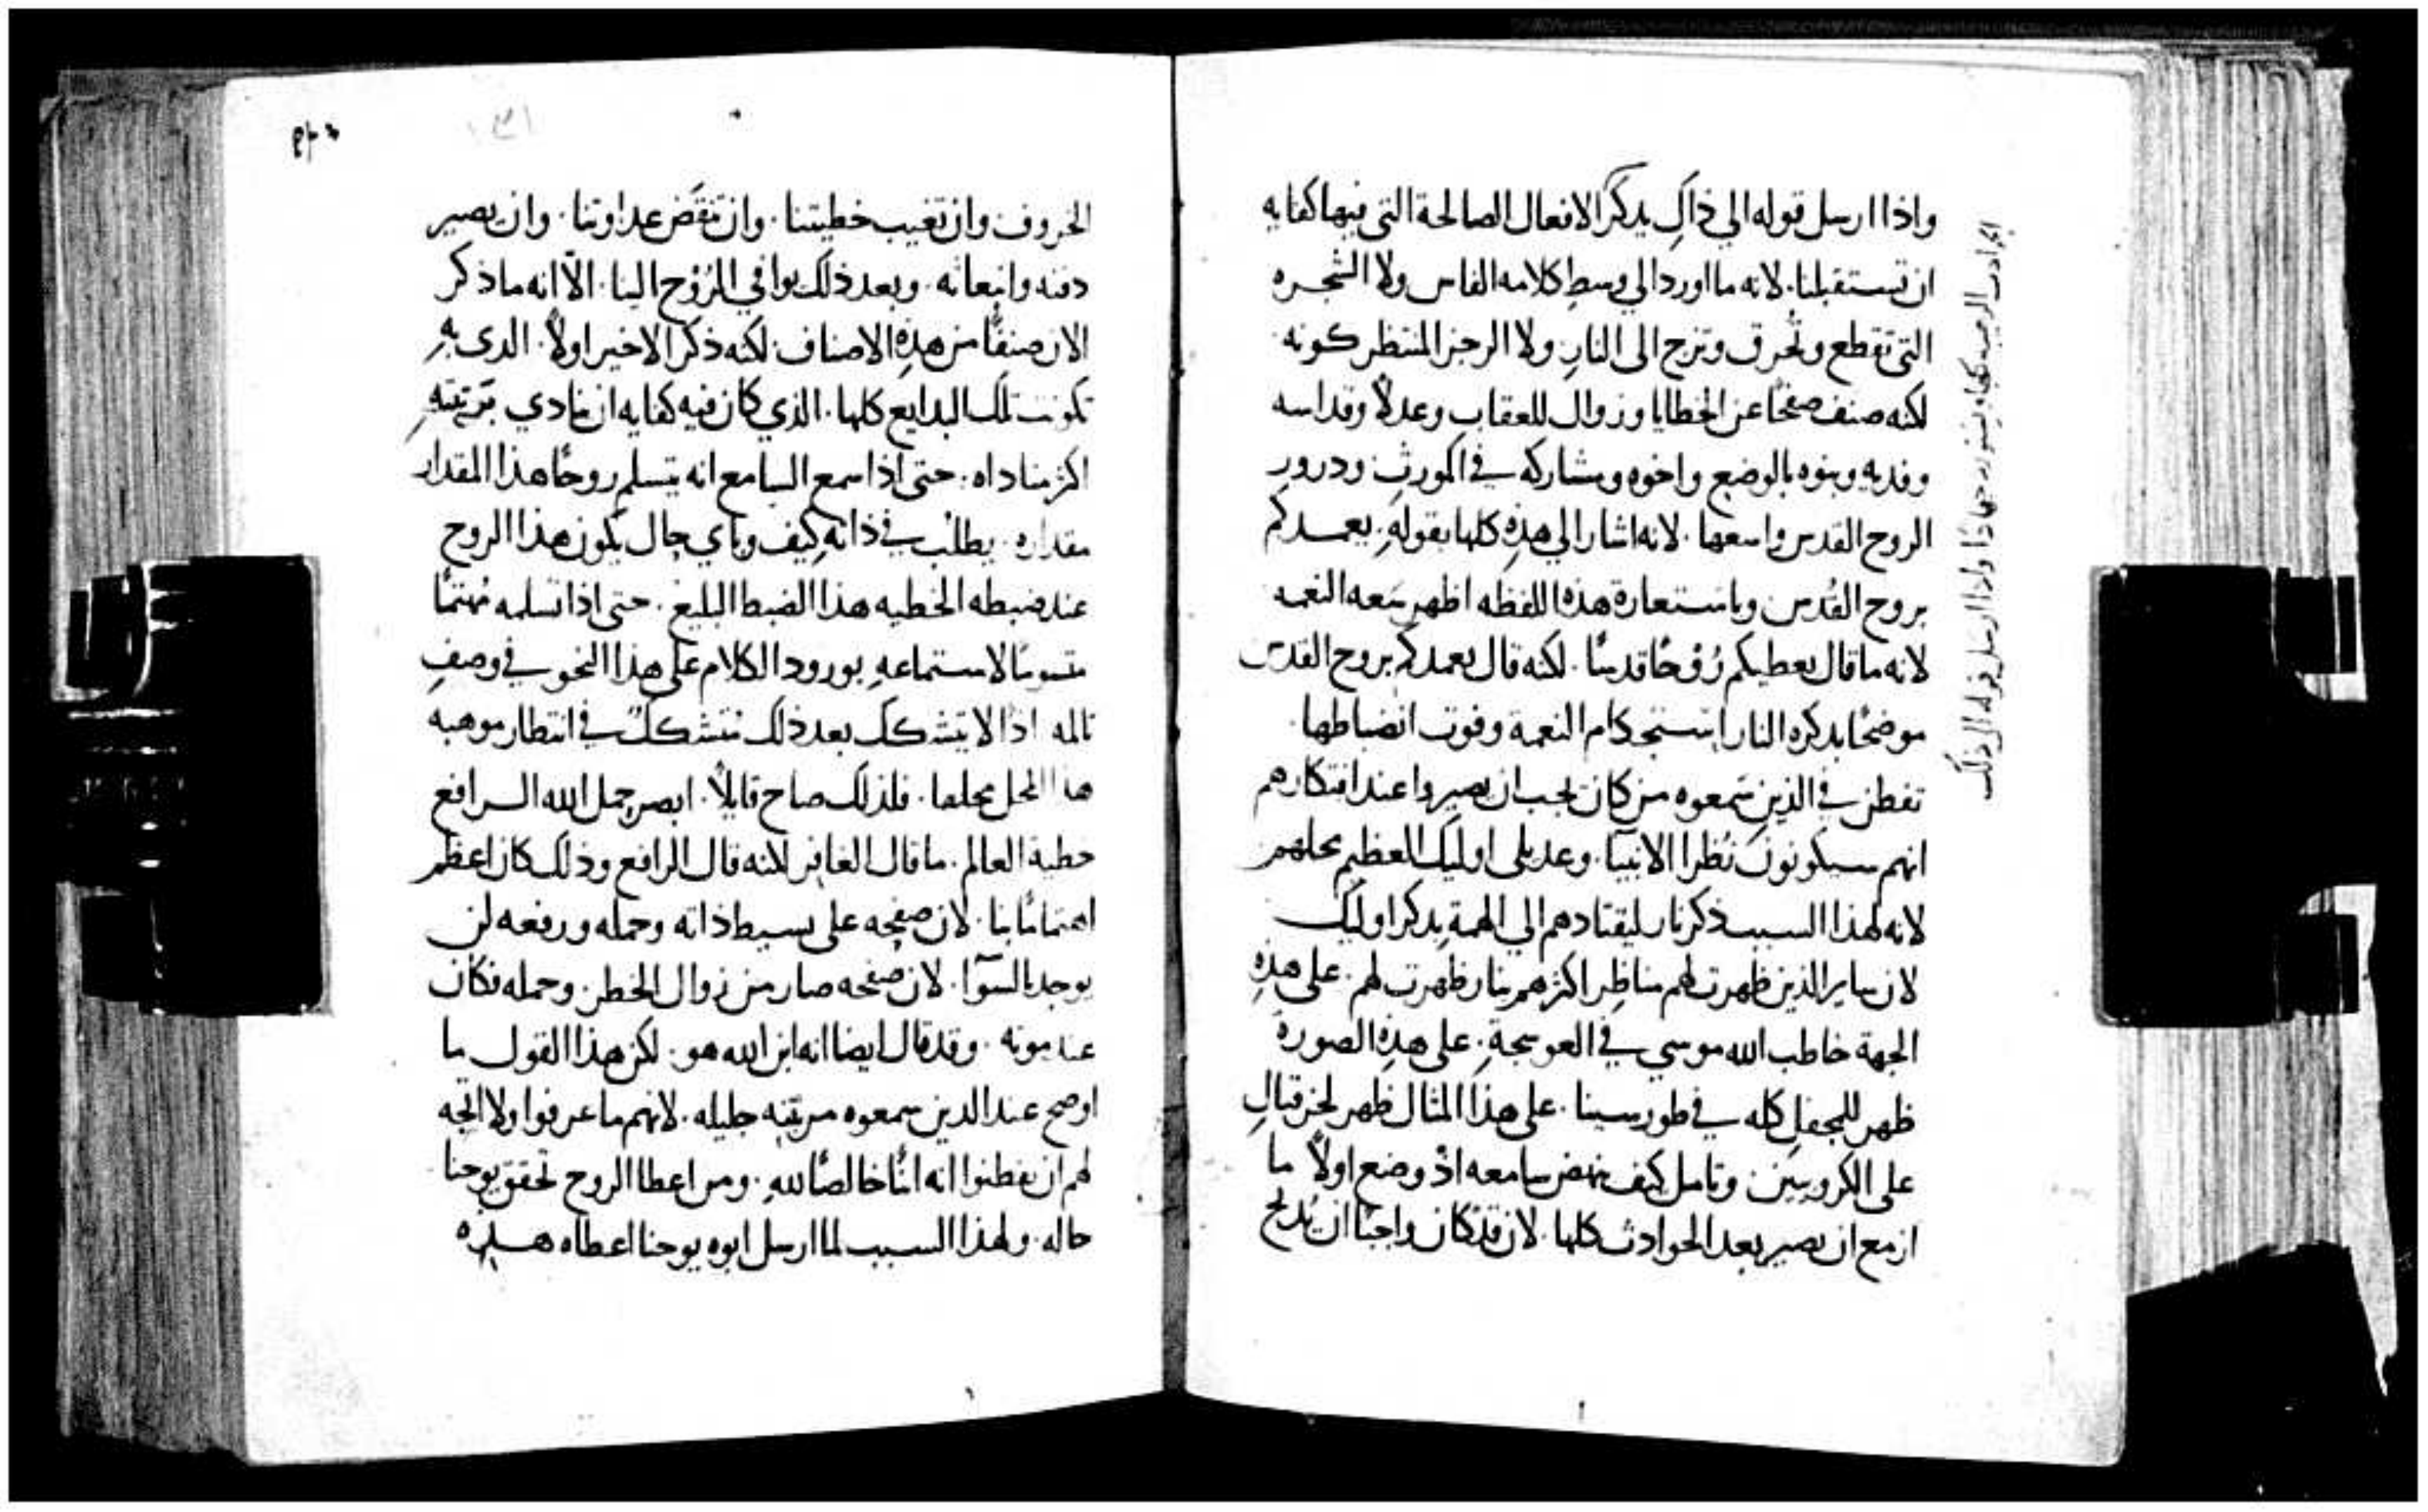 واذا ارسل قوله الي ذاكِ يذكر الافعال الصالحة التي فيها كفايه
ان تستقبلنا. لانه ما اورد الي وسط كلامه الفاس ولا الشجره
التي تقطع وتُحرق وتزج الى النارِ ولا الرجز المنتظر كونه
لكنه صنف صفحًا عن الخطايا وزوال للعقاب وعدلاً وقداسه
وفديه وبنوه بالوضع واخوه ومشاركه في المورث ودرور
الروح القدس واسعها. لانه اشار الي هذه كلها بقولهِ. يعمدكم
بروح القُدس وباستعارة هذه اللفظه اظهر سَعه النعمه
لانه ما قال يعطيكم رُوحًا قدسًا. لكنه قال يعمدكم بروح القدس
موضحًا بذكره النار استحكام النعمة وفوت انضباطها.
تفطن في الذين سَمعوه من كان يجب ان يصيروا عند افتكارهم
انهم سيكونون نُظرا الانبيا. وعديلى اوليك العظيم محلهم
لانه لهذا السبب ذكر نار ليقتادهم الي الهمة بذكر اوليك
لان ساير الذين ظهرت لهم مناظِر اكثرهم بنار ظهرت لهم. على هذهِ
الجهة خاطب الله موسي في العوسجةِ. على هذه الصورة
ظهر للمحفل كله في طور سينا. على هذا المثال ظهر لحزقيالِ
على الكروبين وتامل كيف نهض سامعه اذ وضع اولاً ما
ازمع ان يصير بعد الحوادث كلها. لان قد كان واجبًا ان يُذبح
واذا ارسل قوله الي ذلك
الخروف وان تغيب خطيتنا. وان تنقَض عداوتنا. وان يصير
دفنه وانبعاثه. وبعد ذلك يوافي الرُوح الينا. الاّ انه ما ذكر
الان صنفًا من هذهِ الاصناف. لكنه ذكر الاخير اولاً. الدى بهِ
تكونت تلك البدايع كلها. الذي كان فيه كفايه ان ينادي بمرتبتهِ
اكثر مناداه. حتى اذا سمع السامع انه يتسلم روحًا هذا المقدار
مقداره. يطلب في ذاتهِ كيف وباي حال يكون هذا الروح
عند ضبطه الخطيه هذا الضبط البليغ. حتى اذا تسلمه مُهتمًا
لاستماعهِ بورود الكلام على هذا النحو في وصفِ
تالمه اذًا لا يتشكك بعد ذلك متشككٌ في انتظار موهبه
هذا المحل محلها. فلذلك صاح قايلاً. ابصر حمل الله الرافع
خطية العالم. ما قال الغافر لكنه قال الرافع وذلك كان اعظم
اهتمامًا بنا. لان صفحه على بسيط ذاته وحمله ورفعه لن
يوجد بالسوآ. لان صفحه صار من زوال الخطر. وحمله فكان
عند موته. وقد قال ايضا انه ابن الله هو. لكن هذا القول ما
اوضح عند الدين سمعوه مرتبته جليله. لانهم ما عرفوا ولا اتجه
لهم ان يفطنوا انه ابنًا خالصًا للهِ. ومن اعطا الروح تحقق يوحنا
حاله. ولهذا السبب لما ارسل ابوه يوحنا اعطاه هذه